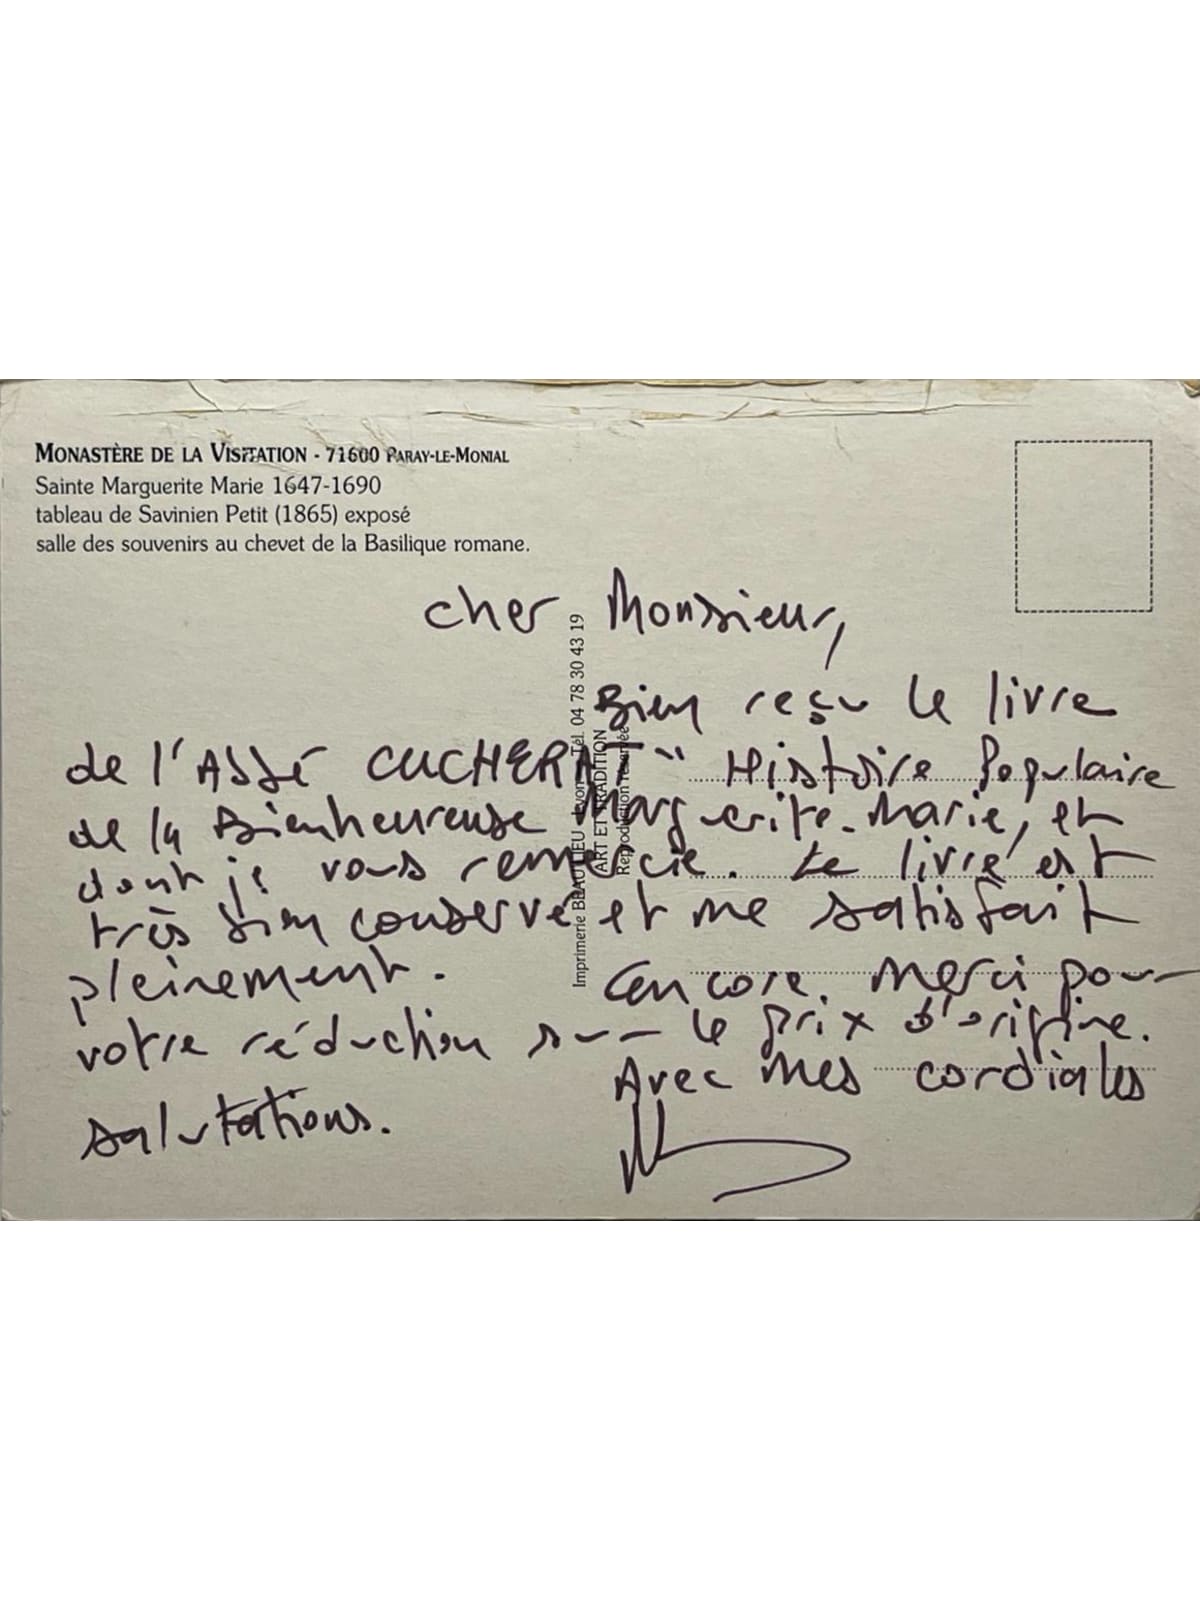 MONASTÈRE DE LA VISITATION - 71600 PARAY-LE-MONIAL
Sainte Marguerite Marie 1647-1690
tableau de Savinien Petit (1865) exposé
salle des souvenirs au chevet de la Basilique romane.
cher Monsieur,
Bien reçu le livre
de l'Abbé CUCHERAT " Histoire Populaire
de la Bienheureuse Marguerite-Marie, et
dont je vous remercie. Le livre est
très bien conservé et me satisfait
pleinement. Encore. merci pour
votre réduction sur le prix d'origine.
Avec mes cordiales
salutations.
Imprimerie BEAULIEU Lyon - Tél. 04 78 30 43 19
ART ET TRADITION
Reproduction réservée